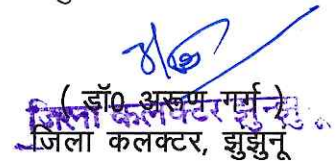 ( डॉ0 अरूण गर्ग )
जिला कलक्टर झुन्झुनू
जिला कलक्टर, झुझुनू